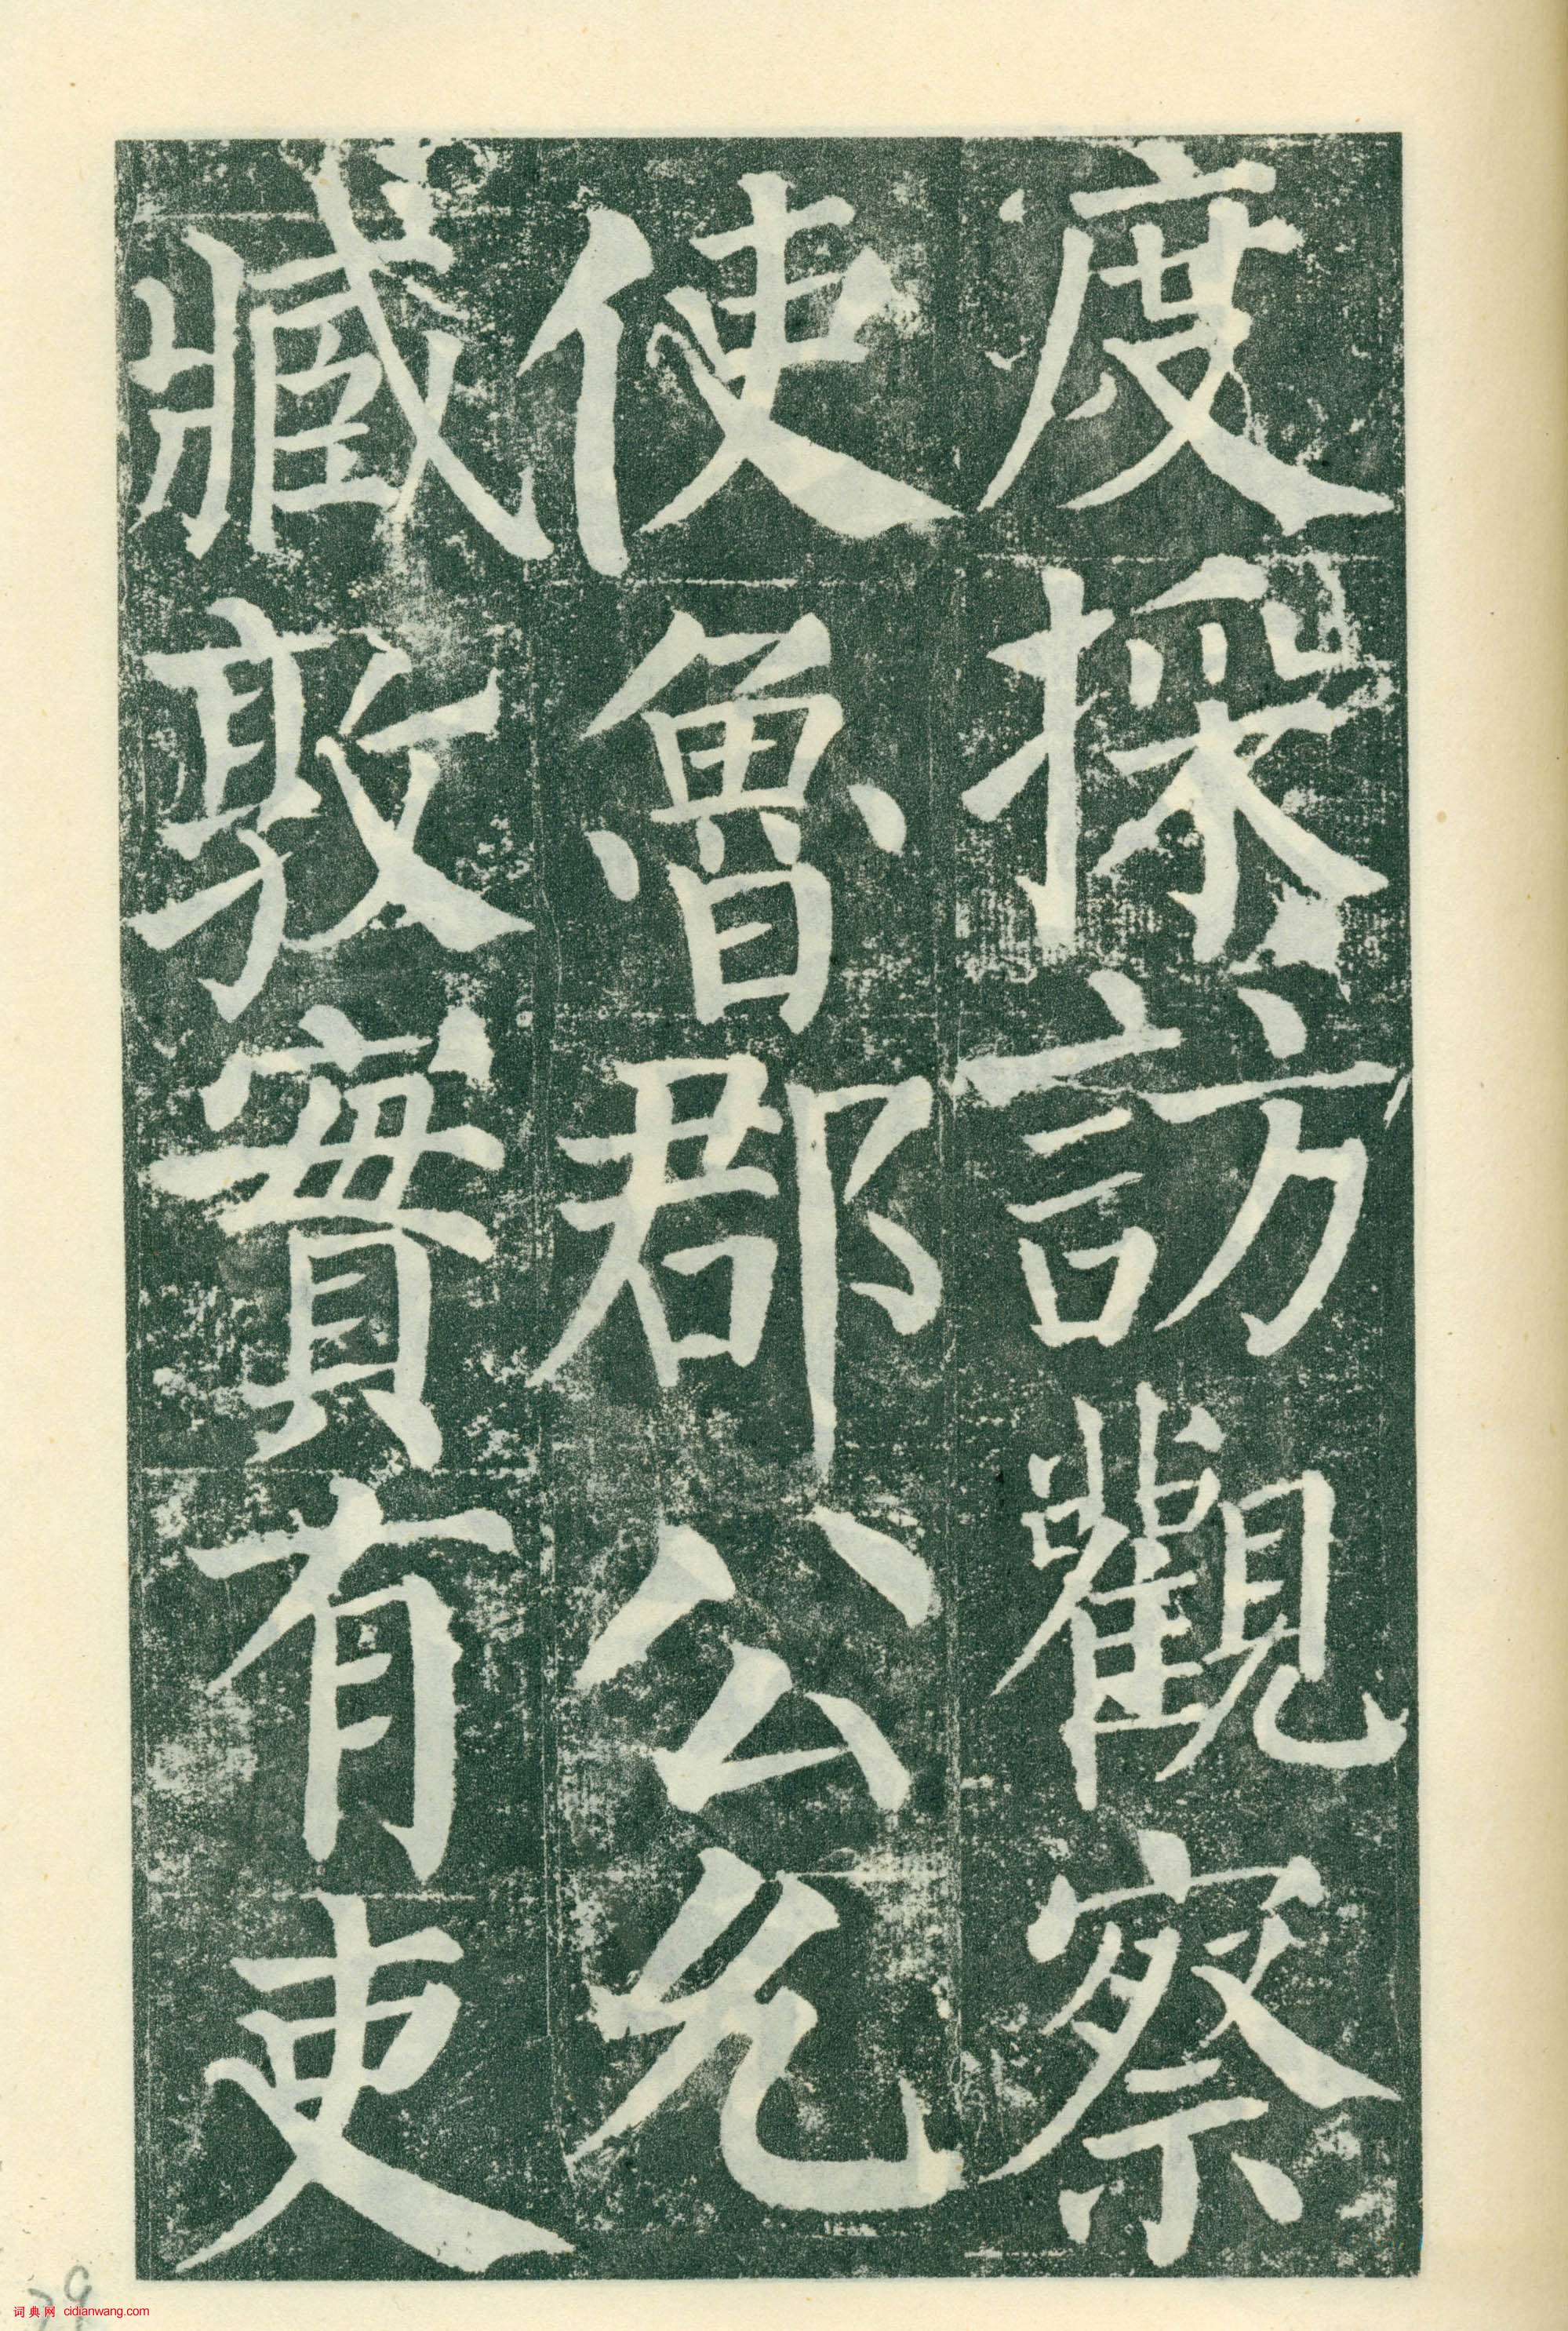 度採訪觀察
使魯郡公允
臧敦實有吏
词典网 cidianwang.com